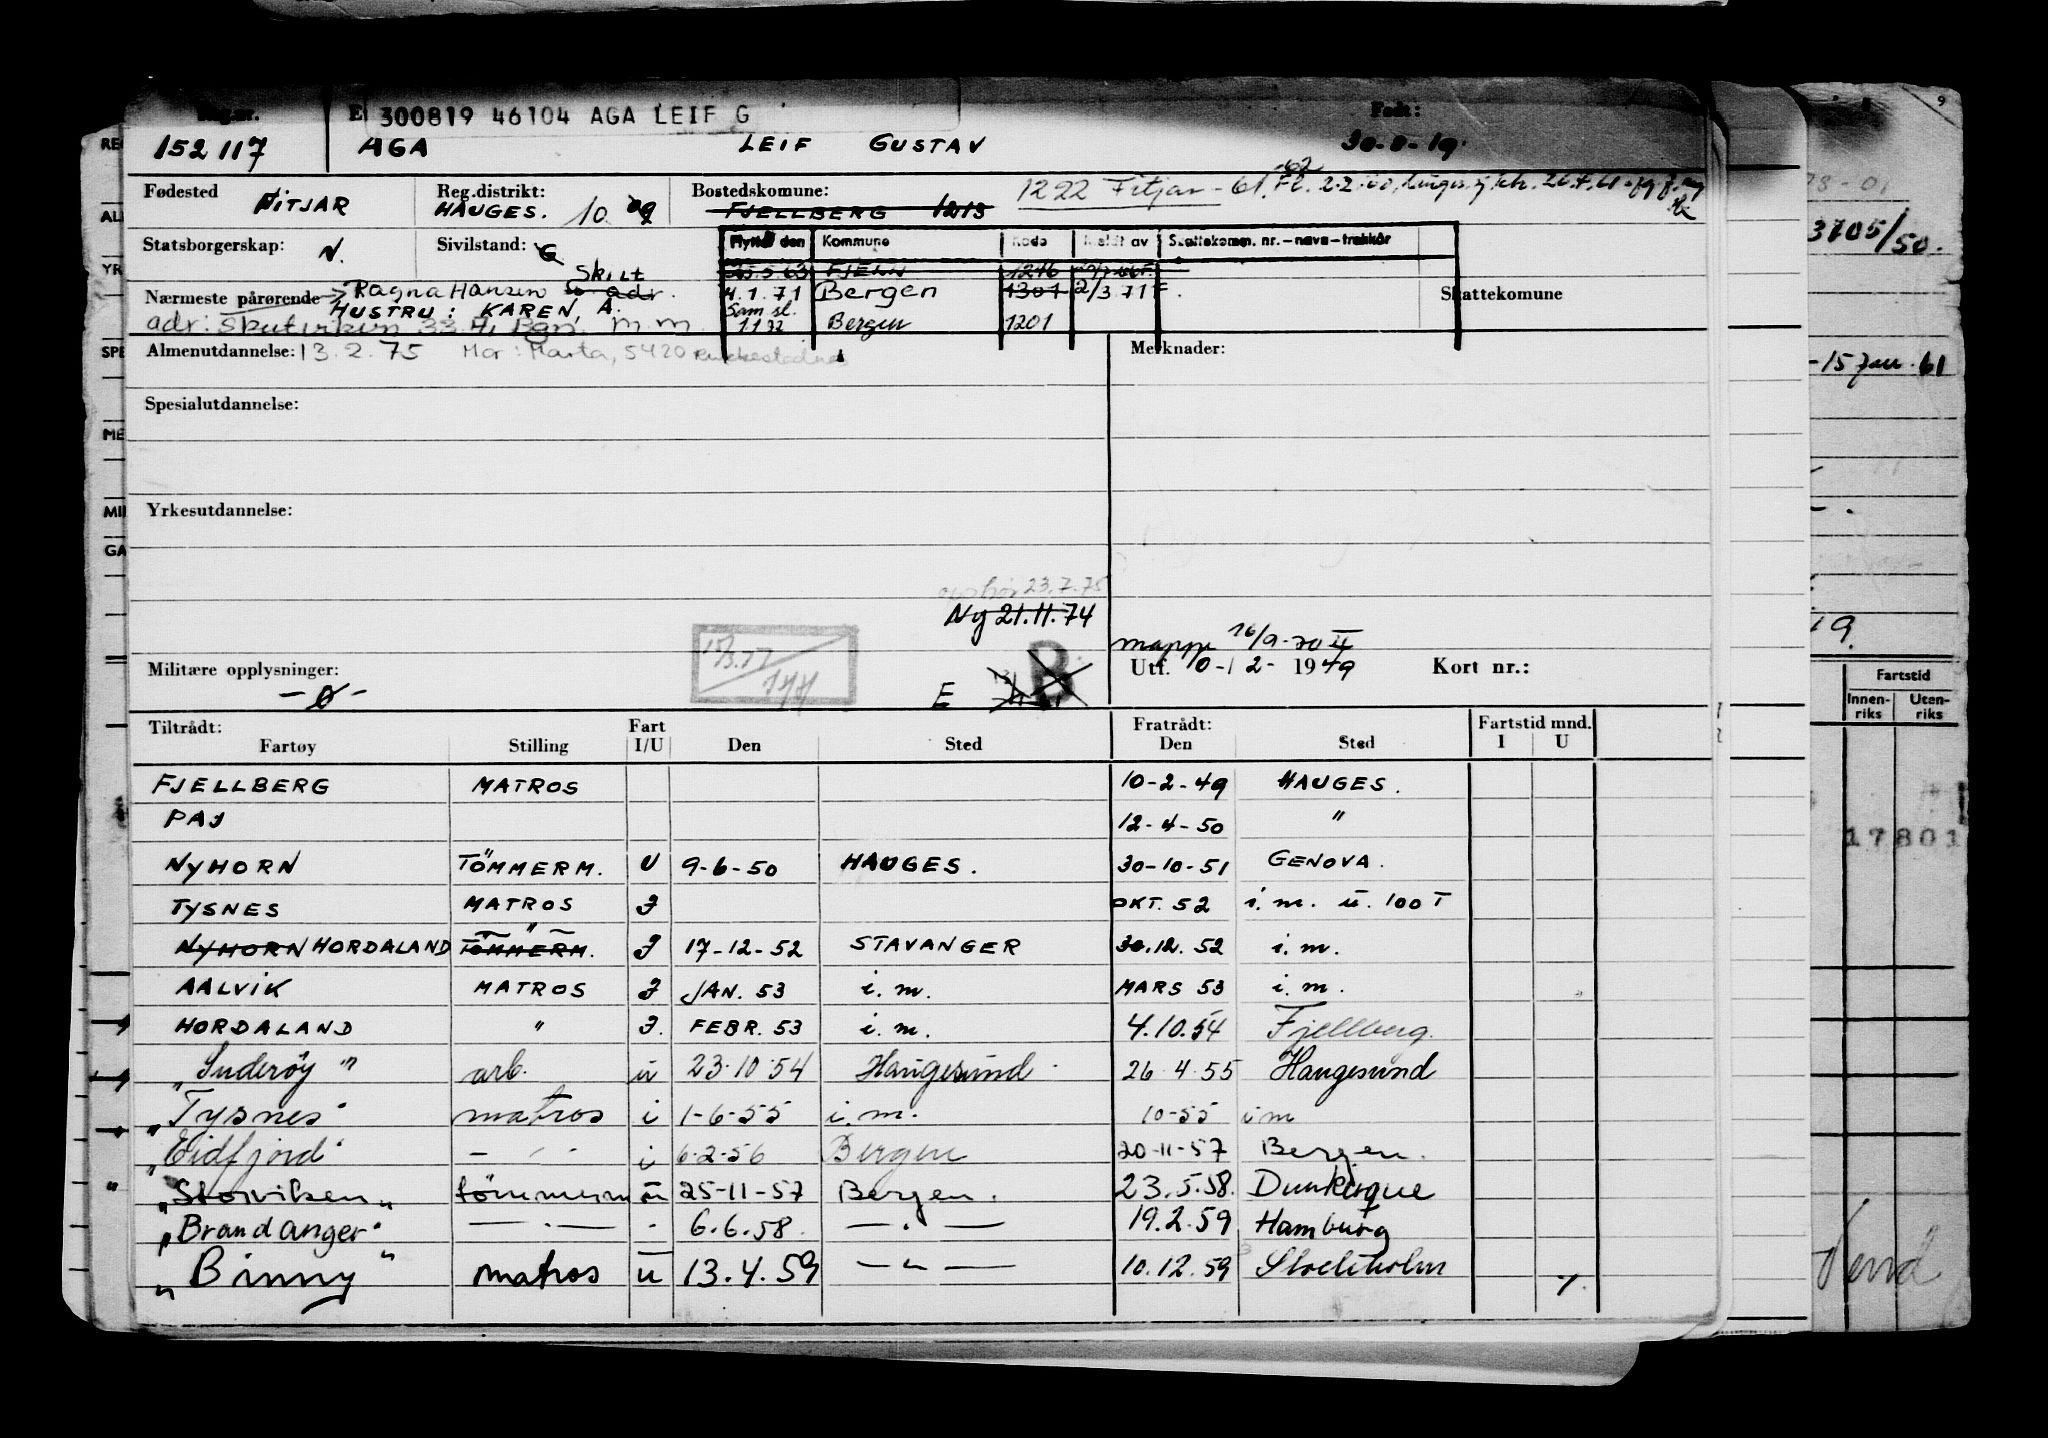 Reg.nr. E 300819 46104 AGA LEIF G Født:
152117 AGA LEIF GUSTAV 30-8-19.
Fødested FITJAR Reg.distrikt: HAUGES. 10 Bostedskomune: FJELLBERG 1213 1222 Fitjar - 61.
Statsborgerskap: N. Sivilstand: G Skilt
Flyttet den Kommune Kode Meldt av Skattekomm. nr.-navn-trekkår
5.63 FJELL 1246
4.1.71 Bergen 1301 2/3 71 F.
Sam sl. 1.1.72 Bergen 1201
Nærmeste pårørende Ragna Hansen So adr. Skattekomune
HUSTRU: KAREN, A.
adr: 33 Bgn. m.m.
Almenutdannelse: 13.2.75 Mor: Marta, 5420 Merknader:
Spesialutdannelse:
Yrkesutdannelse:
23.7.75
Ny 21.11.74
mappe 16/9-70 II
Militære opplysninger: Utf. 10-12-1949 Kort nr.:
-ø- E B
Tiltrådt: Fart Fratrådt: Fartstid mnd.
Fartøy Stilling I/U Den Sted Den Sted I U
FJELLBERG MATROS 10-2-49 HAUGES.
PAJ 12-4-50 "
NYHORN TÖMMERM. U 9-6-50 HAUGES. 30-10-51 GENOVA.
TYSNES MATROS I OKT. 52 i.m. u. 100 T
NYHORN HORDALAND TÖMMERM. " I 17-12-52 STAVANGER 30.12.52 i.m.
AALVIK MATROS I JAN. 53 i.m. MARS 53 i.m.
HORDALAND " I. FEBR. 53 i.m. 4.10.54 Fjellberg.
"Suderöy" arb. u 23.10.54 Haugesund 26.4.55 Haugesund
"Tysnes" matros i 1-6-55 i.m. 10-55 i m
"Eidfjord" - " - i 6-2-56 Bergen 20-11-57 Bergen.
"Storviken" tömmerm u 25-11-57 Bergen. 23.5.58. Dunkerque
"Brandanger" - " - - 6.6.58. - " - 19.2.59 Hamburg
"Binny" matros u 13.4.59 - " - 10.12.59 Stockholm
3705/50.
-15 Jan. 61
19.
Fartstid
Innen-riks Uten-riks
17801